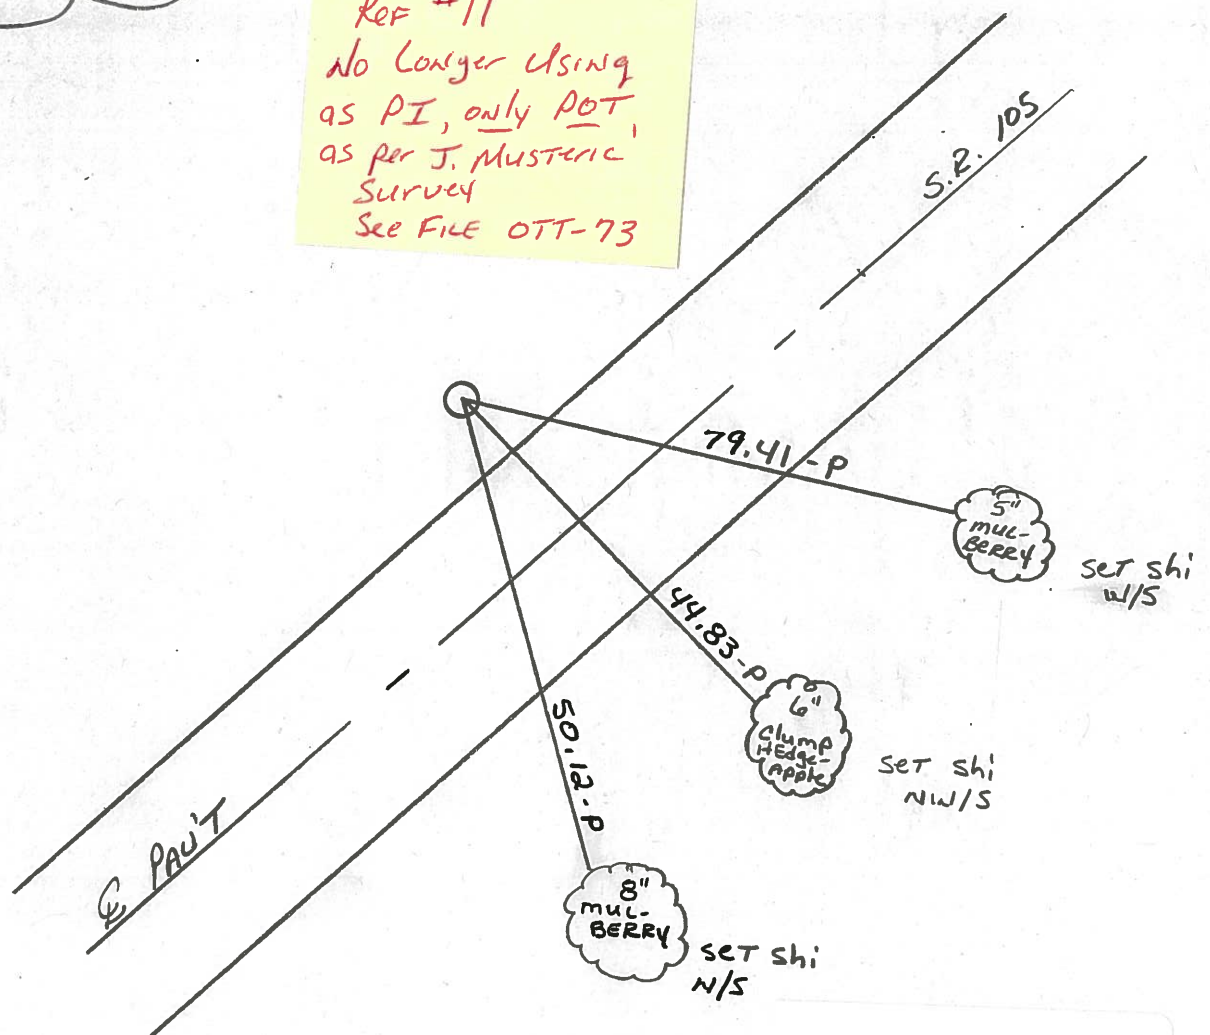 Ref #11
No Longer Using
as PI, only POT,
as per J. Musteric
Survey
See File OTT-73
S.R. 105
79.41-P
5"
MUL-
BERRY
SET Shi
W/S
44.83-P
6"
Clump
HEdge-
Apple
SET Shi
NW/S
50.12-P
8"
MUL-
BERRY
SET Shi
N/S
℄ PAV'T